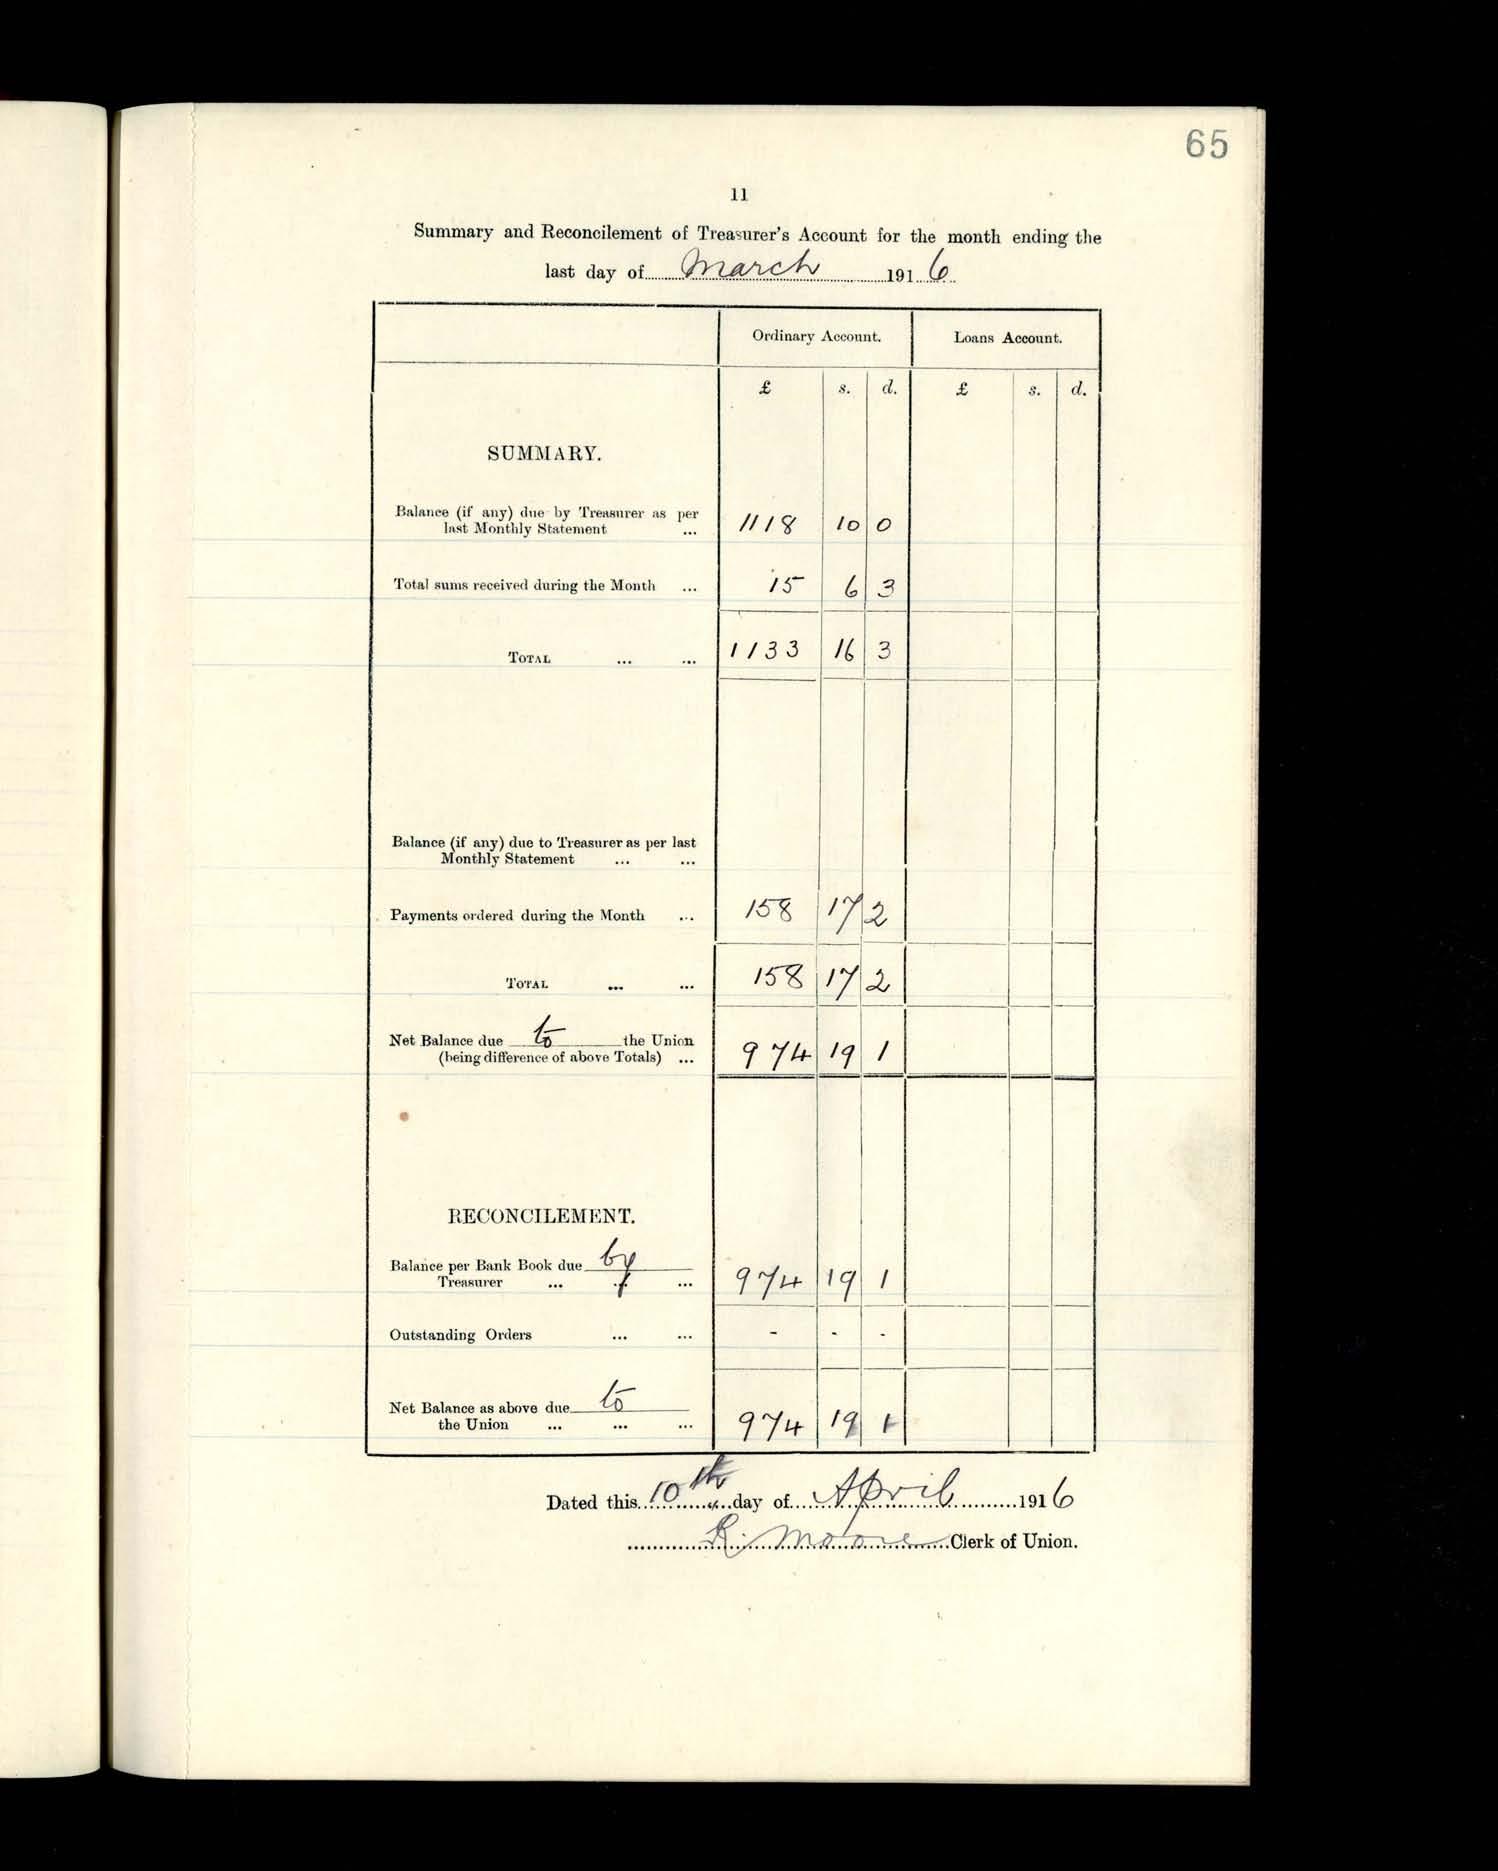 65
11
Summary and Reconcilement of Treasurer's Account for the month ending the
last day of March 1916
Ordinary Account. Loans Account.
£ s. d. £ s. d.
SUMMARY.
Balance (if any) due by Treasurer as per
last Monthly Statement ... 1118 10 0
Total sums received during the Month ... 15 6 3
TOTAL ... ... 1133 16 3
Balance (if any) due to Treasurer as per last
Monthly Statement ... ...
Payments ordered during the Month ... 158 17 2
TOTAL ... ... 158 17 2
Net Balance due to the Union
(being difference of above Totals) ... 974 19 1
RECONCILEMENT.
Balance per Bank Book due by
Treasurer ... ... ... 974 19 1
Outstanding Orders ... ... - - -
Net Balance as above due to
the Union ... ... ... 974 19 1
Dated this 10th day of April 1916
R. Moore Clerk of Union.